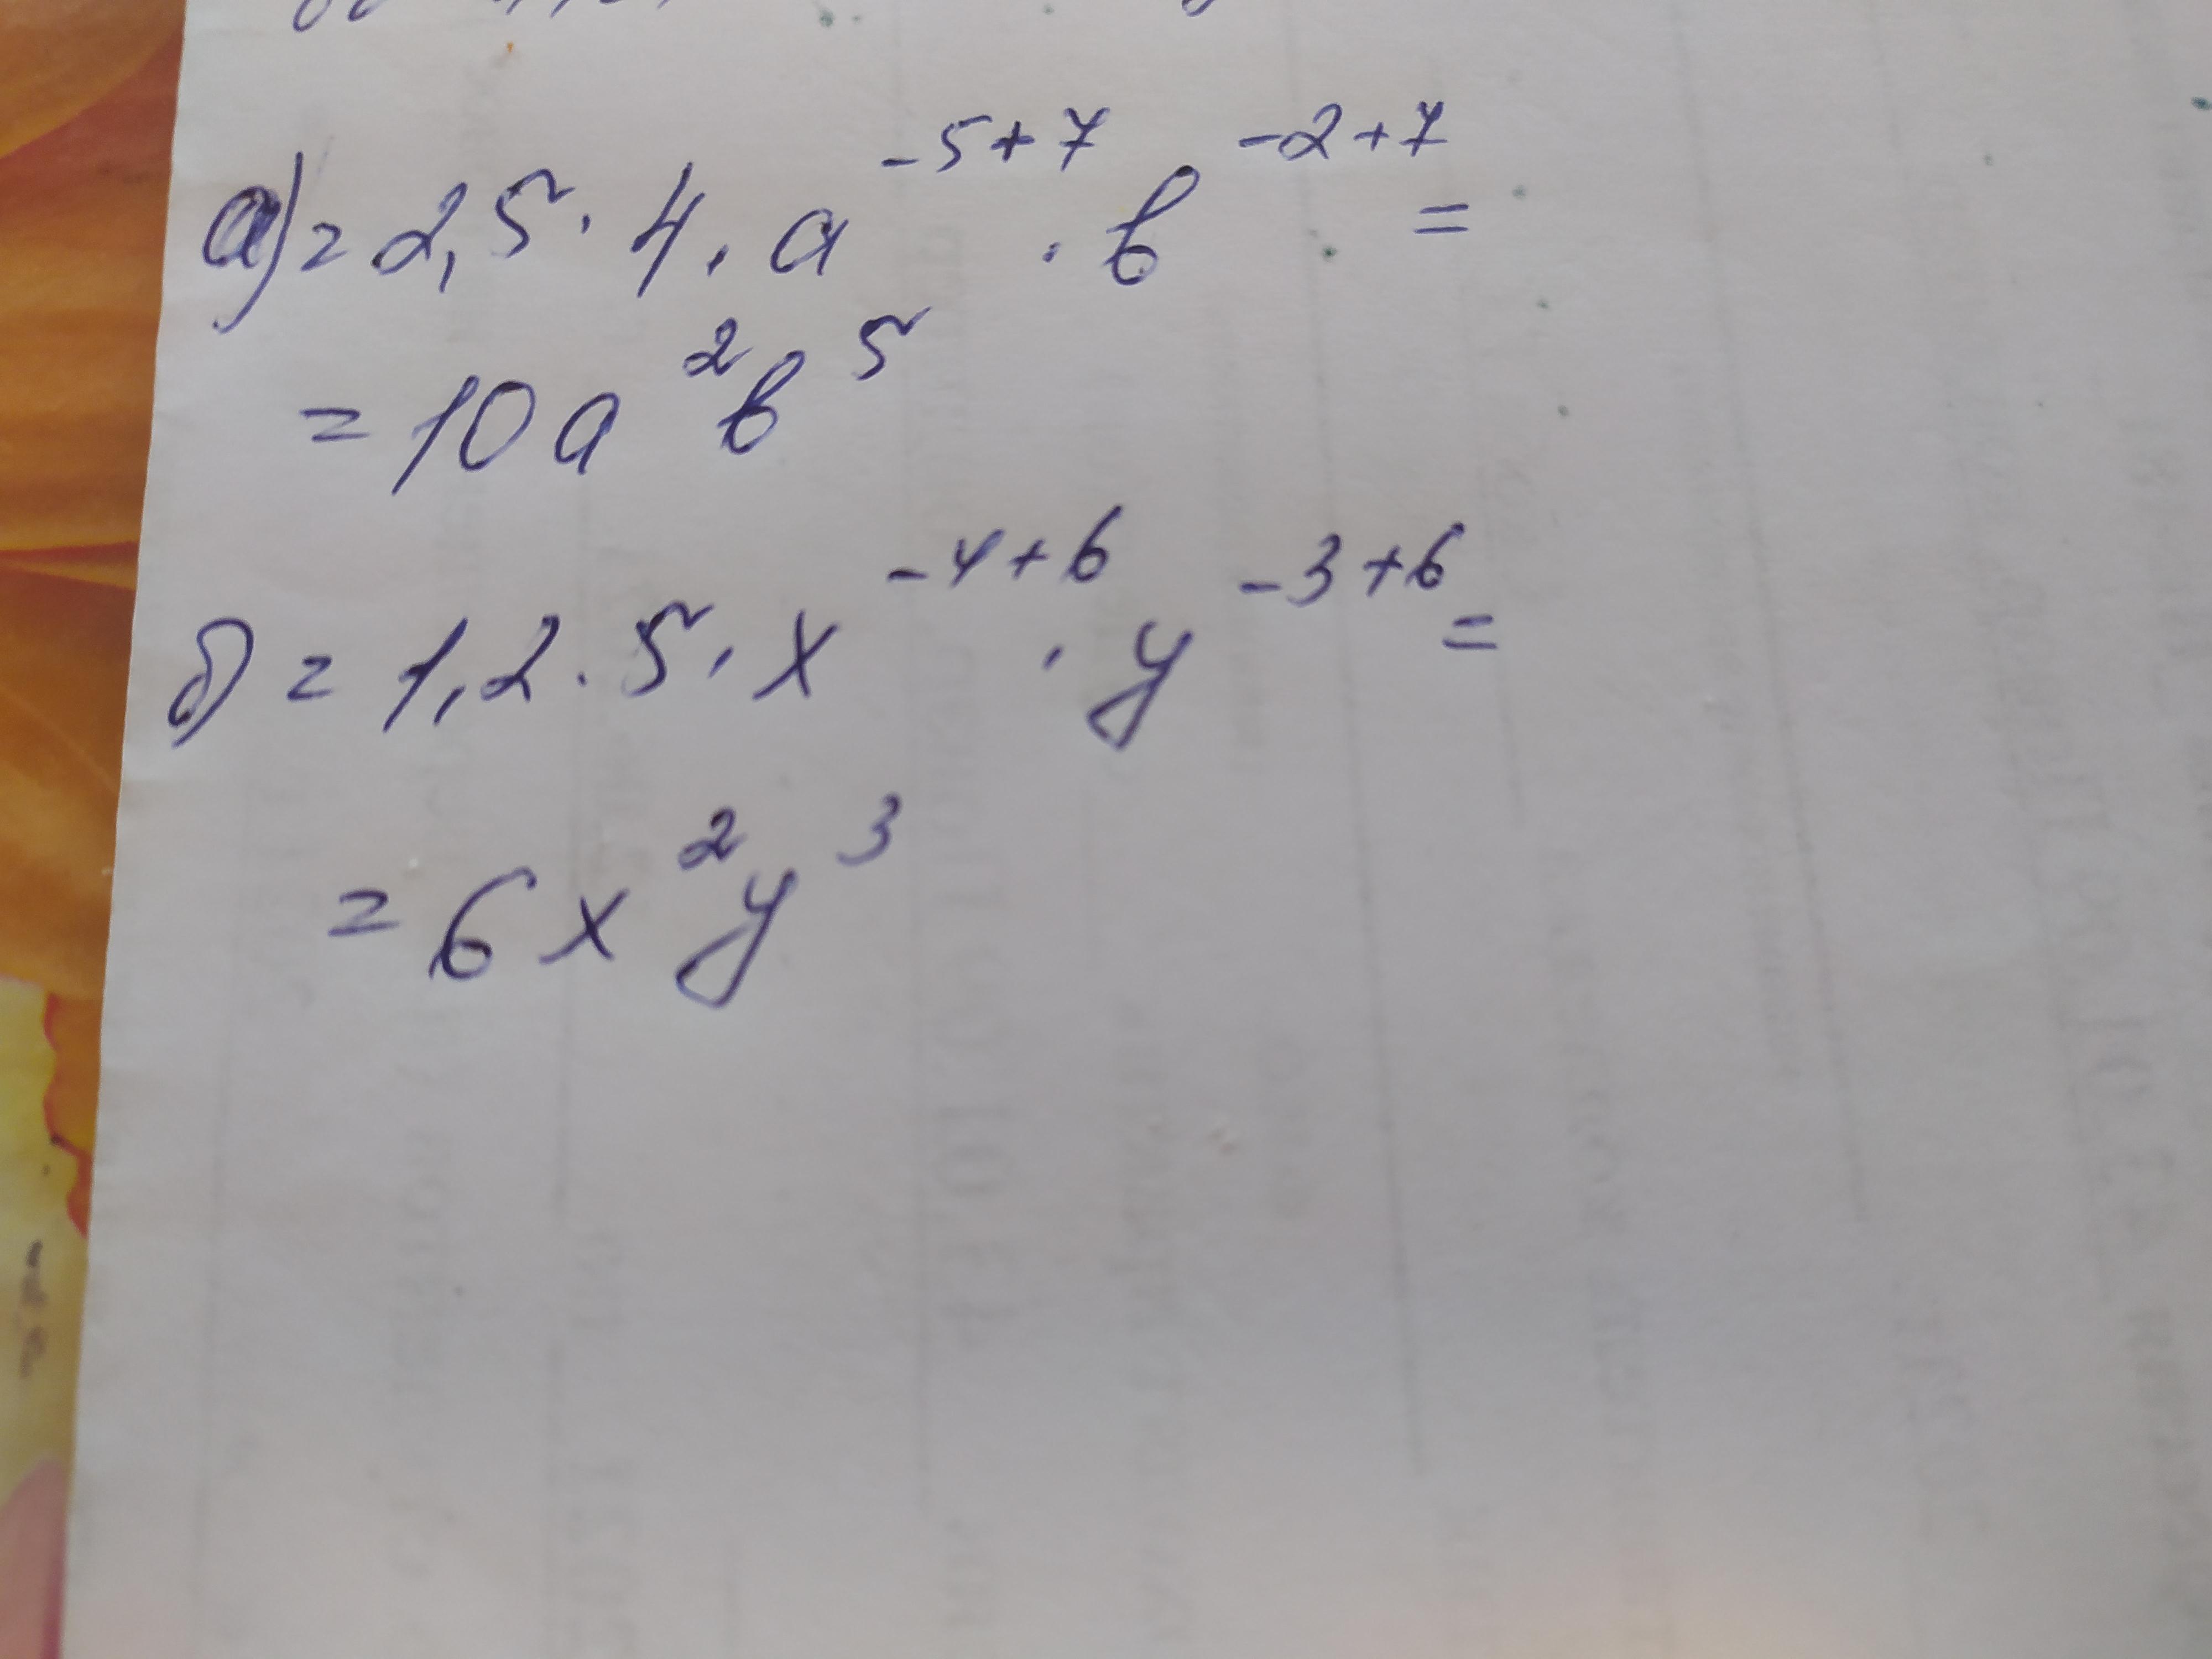 а) = 2,5 · 4 · a^{-5+7} · b^{-2+7} =
= 10 a^2 b^5
б) = 1,2 · 5 · x^{-4+6} · y^{-3+6} =
= 6 x^2 y^3